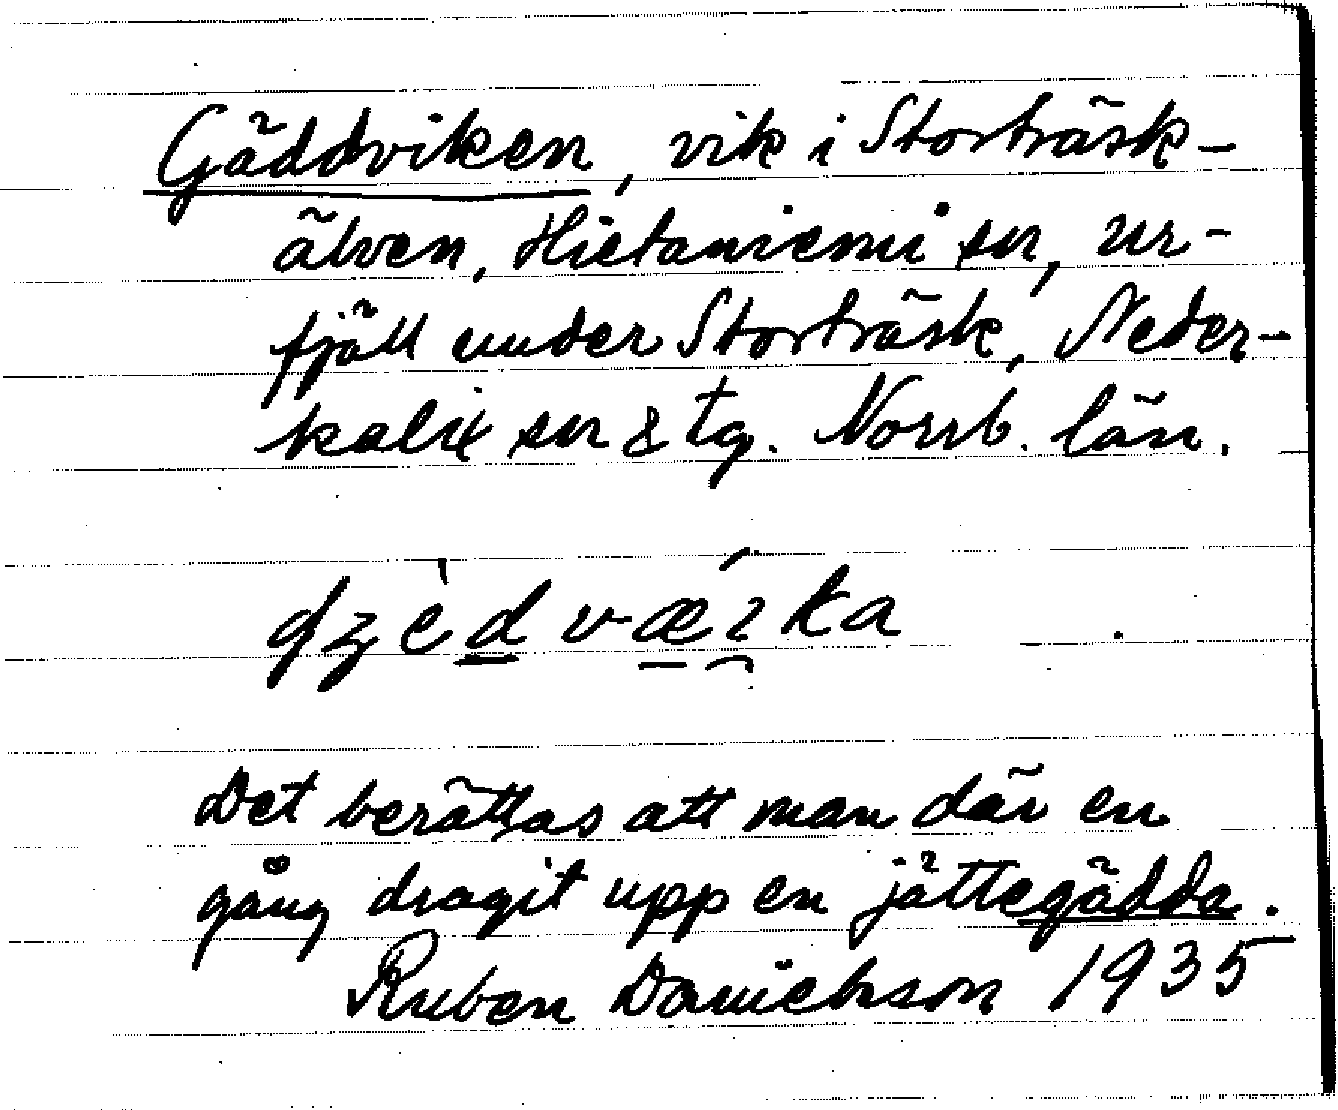 Gäddviken, vik i Storträsk-
älven, Hietaniemi sn, ur-
fjäll under Storträsk, Neder-
kalix sn & tg. Norrb. län.
Det berättas att man där en
gång dragit upp en jättegädda.
Ruben Danielsson 1935